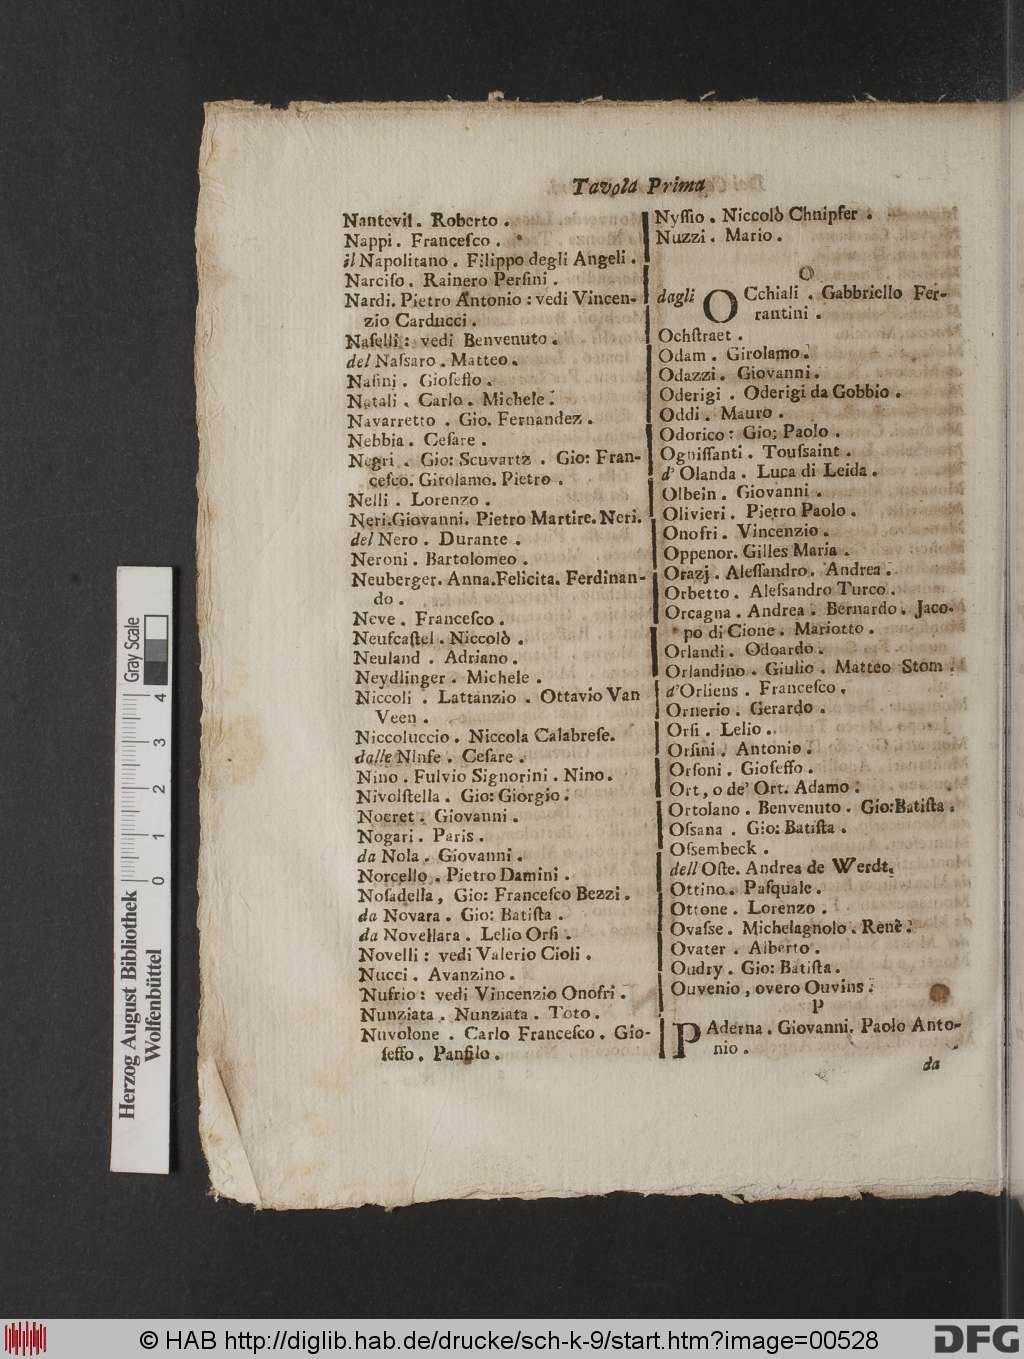 Tavola Prima
Nantevil. Roberto.
Nappi. Franceſco.
il Napolitano. Filippo degli Angeli.
Narciſo. Rainero Perſini.
Nardi. Pietro Antonio: vedi Vincen-
zio Carducci.
Naſelli: vedi Benvenuto.
del Naſsaro. Matteo.
Naſini. Gioſeffo.
Natali. Carlo. Michele.
Navarretto. Gio. Fernandez.
Nebbia. Ceſare.
Negri. Gio: Scuvartz. Gio: Fran-
ceſco. Girolamo. Pietro.
Nelli. Lorenzo.
Neri. Giovanni. Pietro Martire. Neri.
del Nero. Durante.
Neroni. Bartolomeo.
Neuberger. Anna. Felicita. Ferdinan-
do.
Neve. Franceſco.
Neufcaſtel. Niccolò.
Neuland. Adriano.
Neydlinger. Michele.
Niccoli. Lattanzio. Ottavio Van
Veen.
Niccoluccio. Niccola Calabreſe.
dalle Ninfe. Ceſare.
Nino. Fulvio Signorini. Nino.
Nivolſtella. Gio: Giorgio.
Nocret. Giovanni.
Nogari. Paris.
da Nola. Giovanni.
Norcello. Pietro Damini.
Noſadella, Gio: Franceſco Bezzi.
da Novara. Gio: Batiſta.
da Novellara. Lelio Orſi.
Novelli: vedi Valerio Cioli.
Nucci. Avanzino.
Nufrio: vedi Vincenzio Onofri.
Nunziata. Nunziata. Toto.
Nuvolone. Carlo Franceſco. Gio-
ſeffo. Panfilo.
Nyſſio. Niccolò Chnipfer.
Nuzzi. Mario.
O
dagli OCchiali. Gabbriello Fer-
rantini.
Ochſtraet.
Odam. Girolamo.
Odazzi. Giovanni.
Oderigi. Oderigi da Gobbio.
Oddi. Mauro.
Odorico: Gio: Paolo.
Ogniſſanti. Touſsaint.
d' Olanda. Luca di Leida.
Olbein. Giovanni.
Olivieri. Pietro Paolo.
Onofri. Vincenzio.
Oppenor. Gilles Maria.
Orazj. Aleſſandro. Andrea.
Orbetto. Aleſsandro Turco.
Orcagna. Andrea. Bernardo. Jaco-
po di Cione. Mariotto.
Orlandi. Odoardo.
Orlandino. Giulio. Matteo Stom.
d'Orliens. Franceſco.
Ornerio. Gerardo.
Orſi. Lelio.
Orſini. Antonio.
Orſoni. Gioſeffo.
Ort, o de' Ort. Adamo.
Ortolano. Benvenuto. Gio: Batiſta.
Oſsana. Gio: Batiſta.
Oſsembeck.
dell'Oſte. Andrea de Werdt.
Ottino. Paſquale.
Ottone. Lorenzo.
Ovaſse. Michelagnolo. Renè.
Ovater. Alberto.
Oudry. Gio: Batiſta.
Ouvenio, overo Ouvins.
P
PAderna. Giovanni. Paolo Anto-
nio.
da
Herzog August Bibliothek
Wolfenbüttel
Gray Scale
0 1 2 3 4
© HAB http://diglib.hab.de/drucke/sch-k-9/start.htm?image=00528
DFG